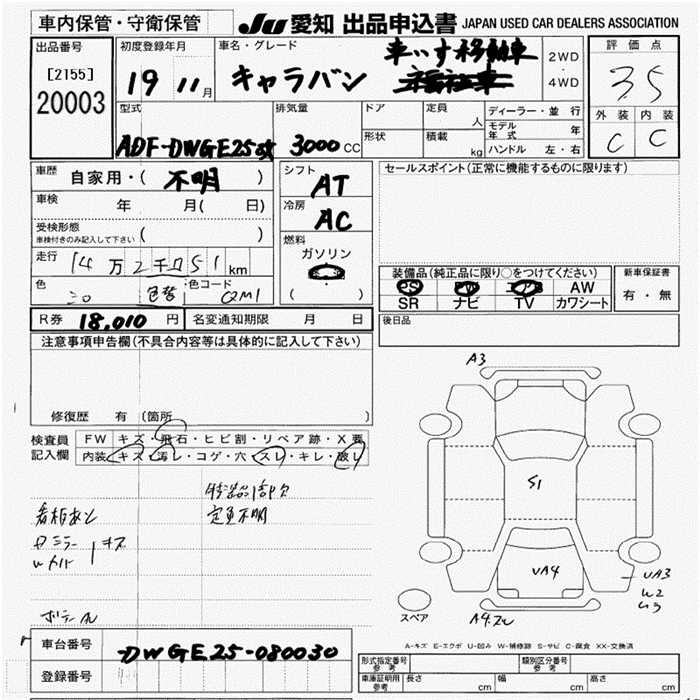 車内保管・守衛保管
JU 愛知 出品申込書 JAPAN USED CAR DEALERS ASSOCIATION
出品番号
[2155]
20003
初度登録年月
19 11月
車名・グレード
キャラバン
車いす移動車
福祉車
2WD
・
4WD
評価点
3.5
外装 内装
C C
型式
ADF-DWGE25改
排気量
3000cc
ドア
形状
定員 人
積載 kg
ディーラー・並行
モデル年式 年
ハンドル 左・右
車歴 自家用・( 不明 )
車検 年 月( 日)
受検形態
車検付きのみ記入して下さい ( )
走行 14万2千051km
色 シロ 色替 色コード QM1
シフト
AT
冷房
AC
燃料
ガソリン
( )
セールスポイント(正常に機能するものに限ります)
装備品(純正品に限り○をつけてください)
PS PW エアB AW
SR ナビ TV カワシート
新車保証書
有・無
R券 18,010円 名変通知期限 月 日
後日品
注意事項申告欄(不具合内容等は具体的に記入して下さい)
修復歴 有 (箇所 )
検査員
記入欄
FW キズ・飛石・ヒビ割・リペア跡・X要
内装 キズ・汚レ・コゲ・穴・スレ・キレ・破レ
特装品1部欠
定員不明
看板あと
キズ
A3
S1
UA4
UA3
スペア
A-キズ E-エクボ U-凹み W-補修跡 S-サビ C-腐食 XX-交換済
車台番号 DWGE25-080030
登録番号
形式指定番号
参考
類別区分番号
参考
車庫証明用
参考
長さ cm 幅 cm 高さ cm